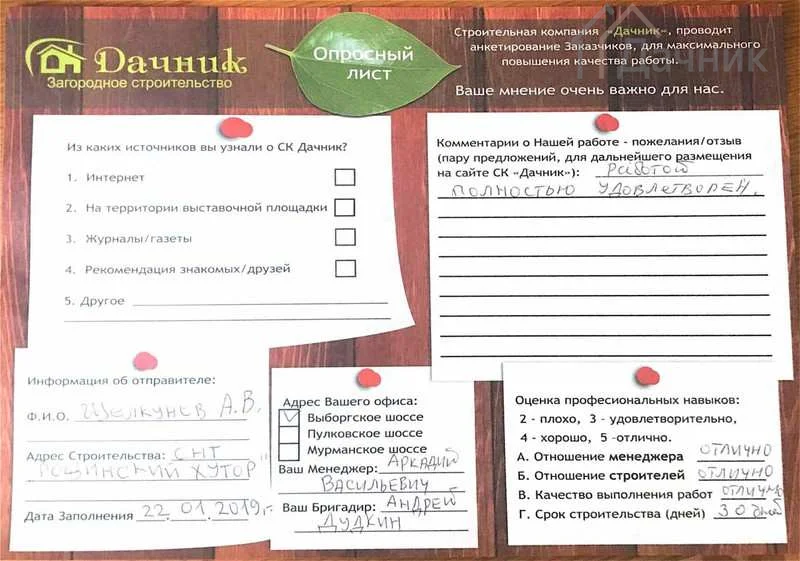 Дачник
Загородное строительство
Опросный
лист
Строительная компания «Дачник», проводит
анкетирование Заказчиков, для максимального
повышения качества работы.
Ваше мнение очень важно для нас.
Дачник
Из каких источников вы узнали о СК Дачник?
1. Интернет
2. На территории выставочной площадки
3. Журналы/газеты
4. Рекомендация знакомых/друзей
5. Другое
Комментарии о Нашей работе - пожелания/отзыв
(пару предложений, для дальнейшего размещения
на сайте СК «Дачник»): Работой
полностью удовлетворен.
Информация об отправителе:
Ф.И.О. Щелкунов А.В.
Адрес Строительства: СНТ
Рощинский хутор
Дата Заполнения 22.01.2019г.
Адрес Вашего офиса:
Выборгское шоссе
Пулковское шоссе
Мурманское шоссе
Ваш Менеджер: Аркадий
Васильевич
Ваш Бригадир: Андрей
Дудкин
Оценка профессиональных навыков:
2 - плохо, 3 - удовлетворительно,
4 - хорошо, 5 -отлично.
А. Отношение менеджера отлично
Б. Отношение строителей отлично
В. Качество выполнения работ отлично
Г. Срок строительства (дней) 30 дней